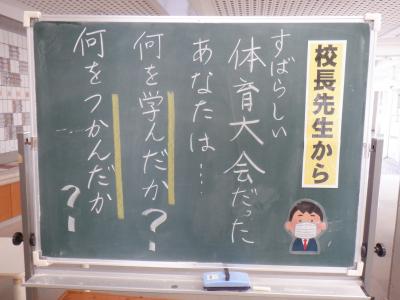 校長先生から
すばらしい
体育大会だった
あなたは…
何を学んだか?
何をつかんだか?